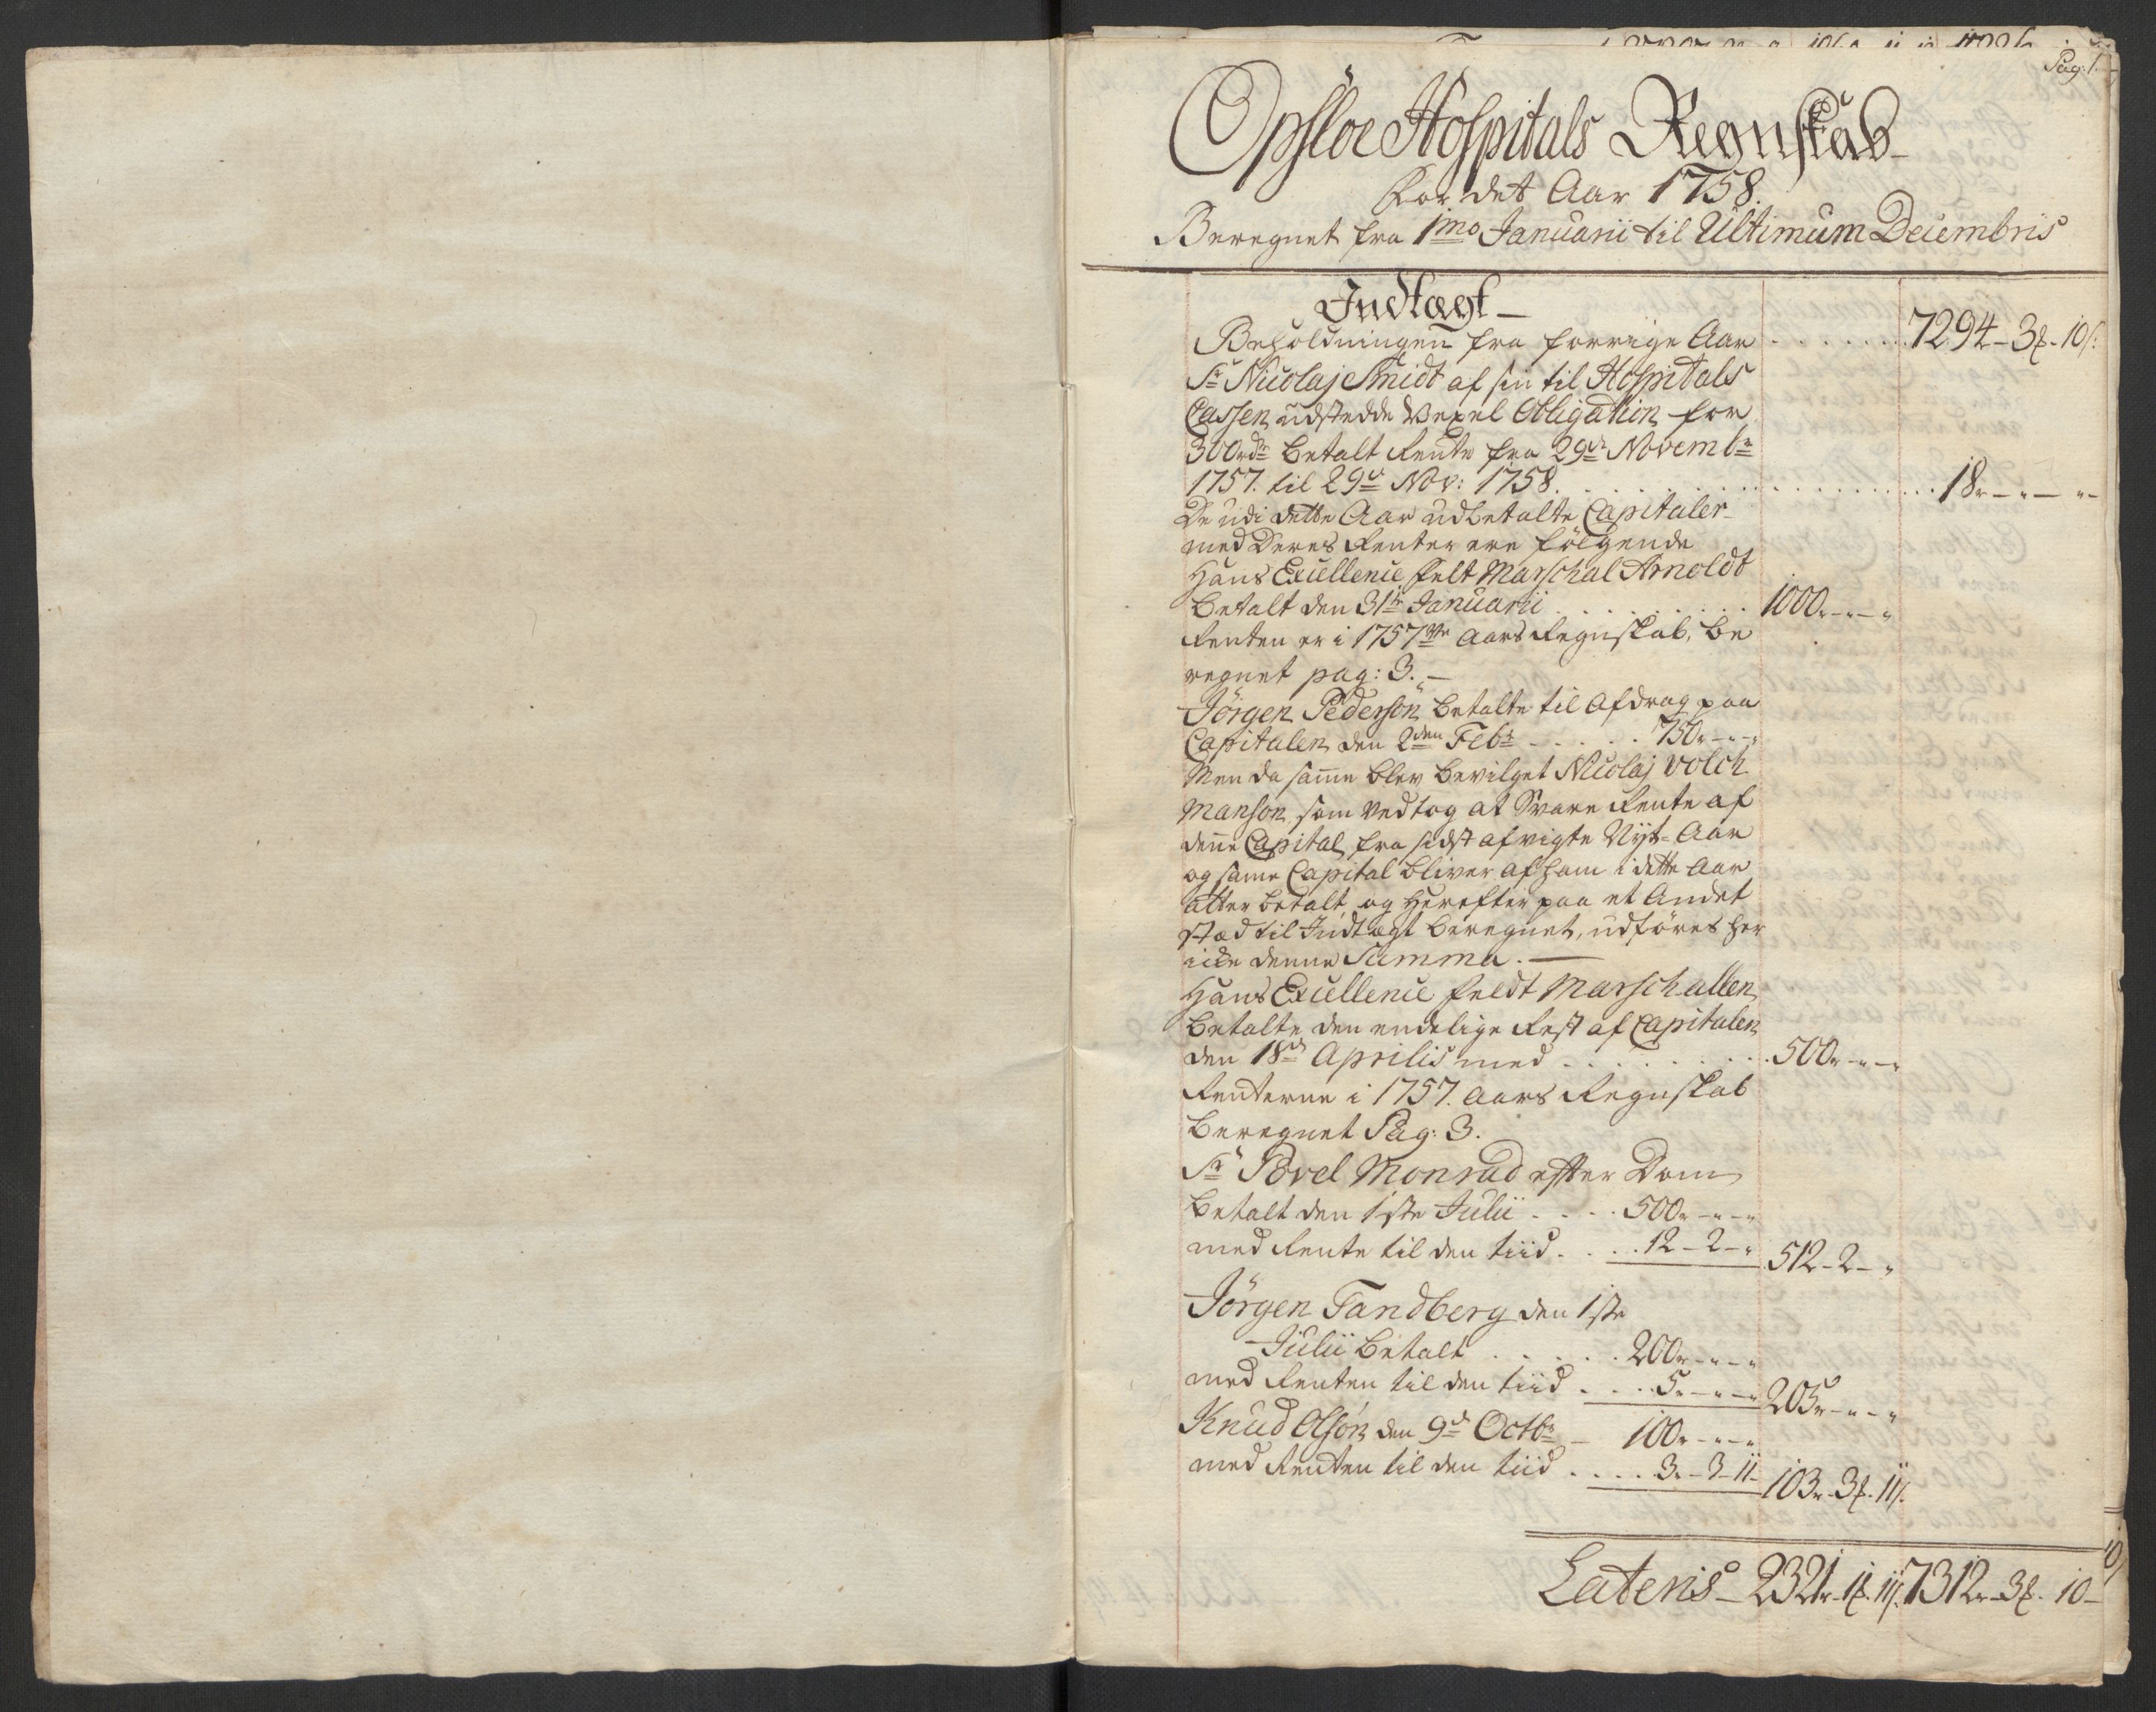 Pag: 1.
Opsloe Hospitals Regnskab
For det Aar 1758.
Beregnet fra 1mo Januarii til Ultimum Decembris
Indtægt
Beholdningen fra forrige Aar . . . . . . . 7294 - 3 - 10
Sr Nicolaj Smidt af sin til Hospitals
Cassen udstedde Vexel Obligation for
300rdr betalt Rente fra 29de Novembr
1757. til 29de Nov: 1758. . . . . . . . 18 - " - "
De udi dette Aar udbetalte Capitaler
med Deres Renter ere følgende
Hans Excellence Felt Marschal Arnoldt
betalt den 31te Januarii . . . . . . . . 1000 - " - "
Renten er i 1757de Aars Regnskab, be
regnet pag: 3. -
Jörgen Pedersön betalte til Afdrag paa
Capitalen den 2den Febr - . . . . 750 - " - "
Men da samme blev bevilget Nicolaj Volch
Manson, som vedtog at Svare Rente af
denne Capital, fra sidst afvigte Nyt-Aar
og samme Capital bliver af ham i dette Aar
atter betalt, og herefter paa et Andet
stæd til Indtægt beregnet, udföres her
icke denne Summa. -
Hans Excellence Feldt Marschallen
betalte den endelige Rest af Capitalen
den 18de Aprilis med . . . . . . . . 500 - " - "
Renterne i 1757. Aars Regnskab
beregnet Pag: 3.
Sr Povel Monrad efter Dom
betalt den 1ste Julii . . . . 500 - " - "
med Rente til den tiid . . . . 12 - 2 - " 512 - 2 - "
Jörgen Tandberg den 1ste
Julii betalt . . . . . 200 - " - "
med Renten til den tiid . . . . 5 - " - " 205 - " - "
Knud Olsön den 9de Octbr - 100 - " - "
med Renten til den tiid . . . . 3 - 3 - 11 103 - 3 - 11
Lateris - 2321 - 1 - 11 7312 - 3 - 10 -